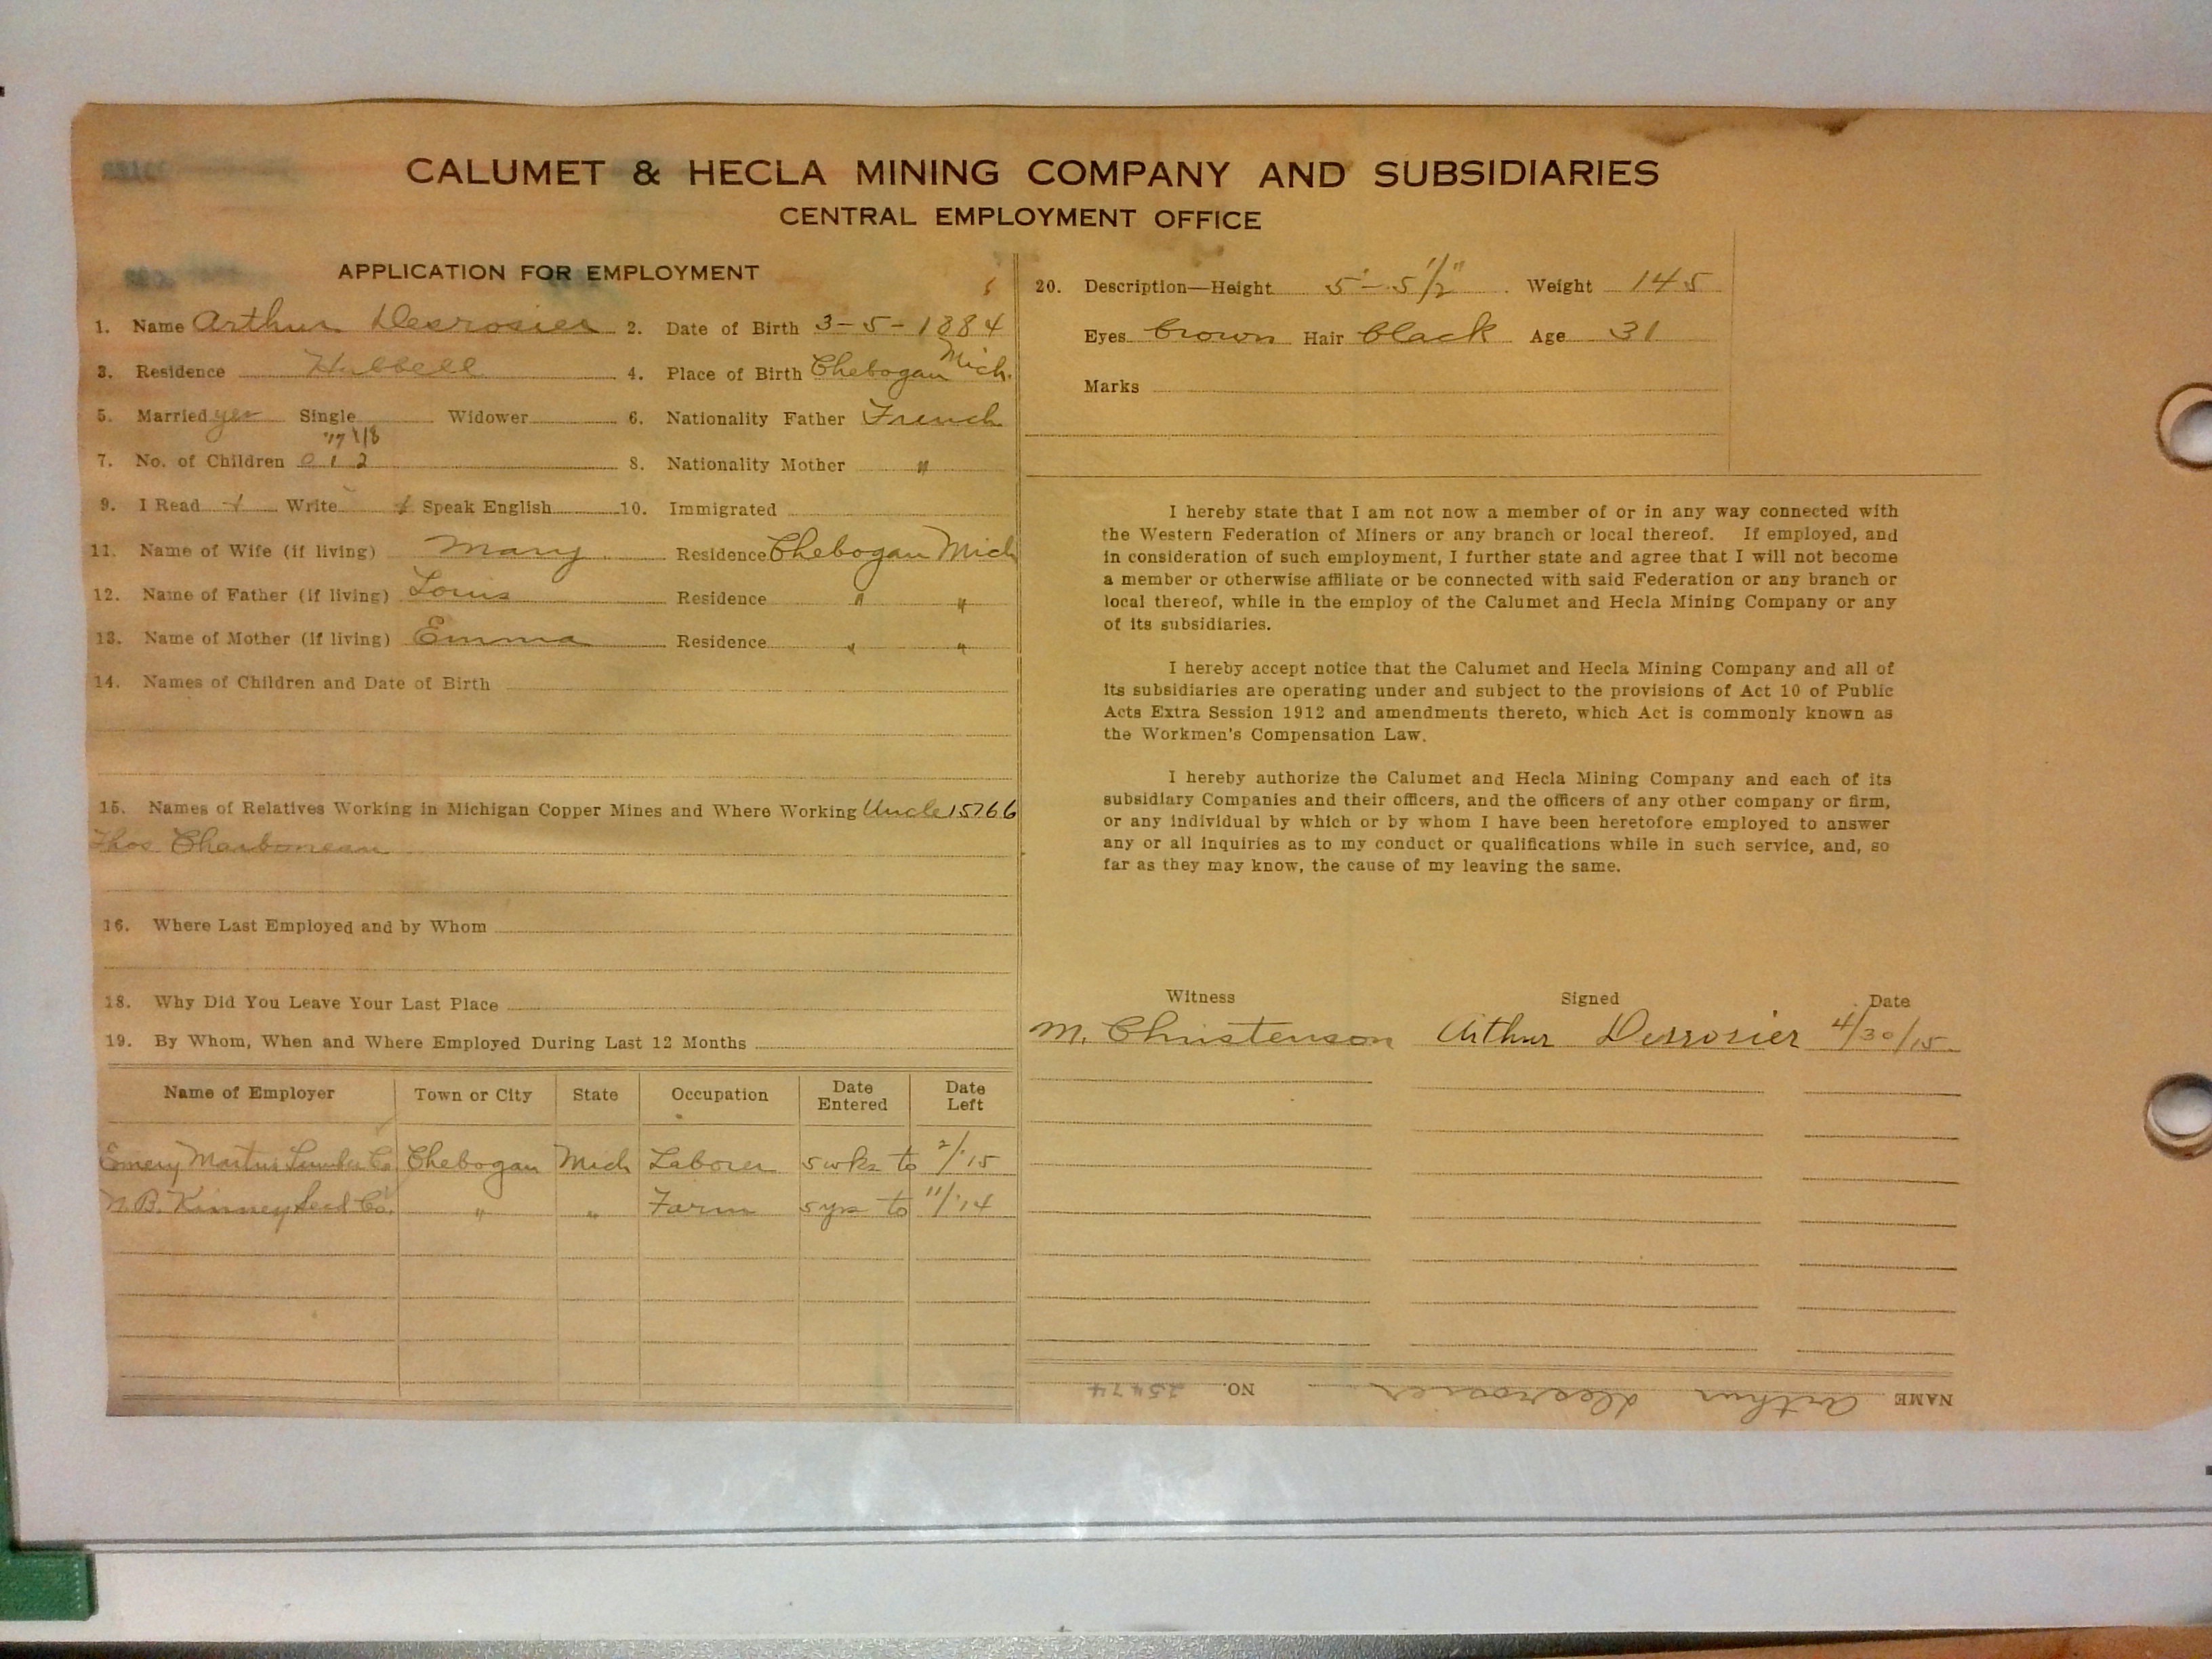 CALUMET & HECLA MINING COMPANY AND SUBSIDIARIES
CENTRAL EMPLOYMENT OFFICE
APPLICATION FOR EMPLOYMENT
1. Name Arthur Desrosier 2. Date of Birth 3-5-1884
3. Residence Hubbell 4. Place of Birth Chebogan Mich.
5. Married yes Single Widower 6. Nationality Father French
'17 '18
7. No. of Children 0 1 2 8. Nationality Mother "
9. I Read Write Speak English 10. Immigrated
11. Name of Wife (if living) Mary Residence Chebogan Mich
12. Name of Father (if living) Louis Residence " "
13. Name of Mother (if living) Emma Residence " "
14. Names of Children and Date of Birth
15. Names of Relatives Working in Michigan Copper Mines and Where Working Uncle 15766
Thos Charboneau
16. Where Last Employed and by Whom
18. Why Did You Leave Your Last Place
19. By Whom, When and Where Employed During Last 12 Months
Name of Employer Town or City State Occupation Date Entered Date Left
Emery Martin Lumber Co Chebogan Mich Laborer 5 wks to 2/'15
N.B. Kinney Seed Co. " " Farm 5 yrs to 11/'14
20. Description—Height 5'-5 1/2" Weight 145
Eyes brown Hair black Age 31
Marks
I hereby state that I am not now a member of or in any way connected with
the Western Federation of Miners or any branch or local thereof. If employed, and
in consideration of such employment, I further state and agree that I will not become
a member or otherwise affiliate or be connected with said Federation or any branch or
local thereof, while in the employ of the Calumet and Hecla Mining Company or any
of its subsidiaries.
I hereby accept notice that the Calumet and Hecla Mining Company and all of
its subsidiaries are operating under and subject to the provisions of Act 10 of Public
Acts Extra Session 1912 and amendments thereto, which Act is commonly known as
the Workmen's Compensation Law.
I hereby authorize the Calumet and Hecla Mining Company and each of its
subsidiary Companies and their officers, and the officers of any other company or firm,
or any individual by which or by whom I have been heretofore employed to answer
any or all inquiries as to my conduct or qualifications while in such service, and, so
far as they may know, the cause of my leaving the same.
Witness Signed Date
M. Christenson Arthur Desrosier 4/30/15
NAME Arthur Desrosier NO. 25474